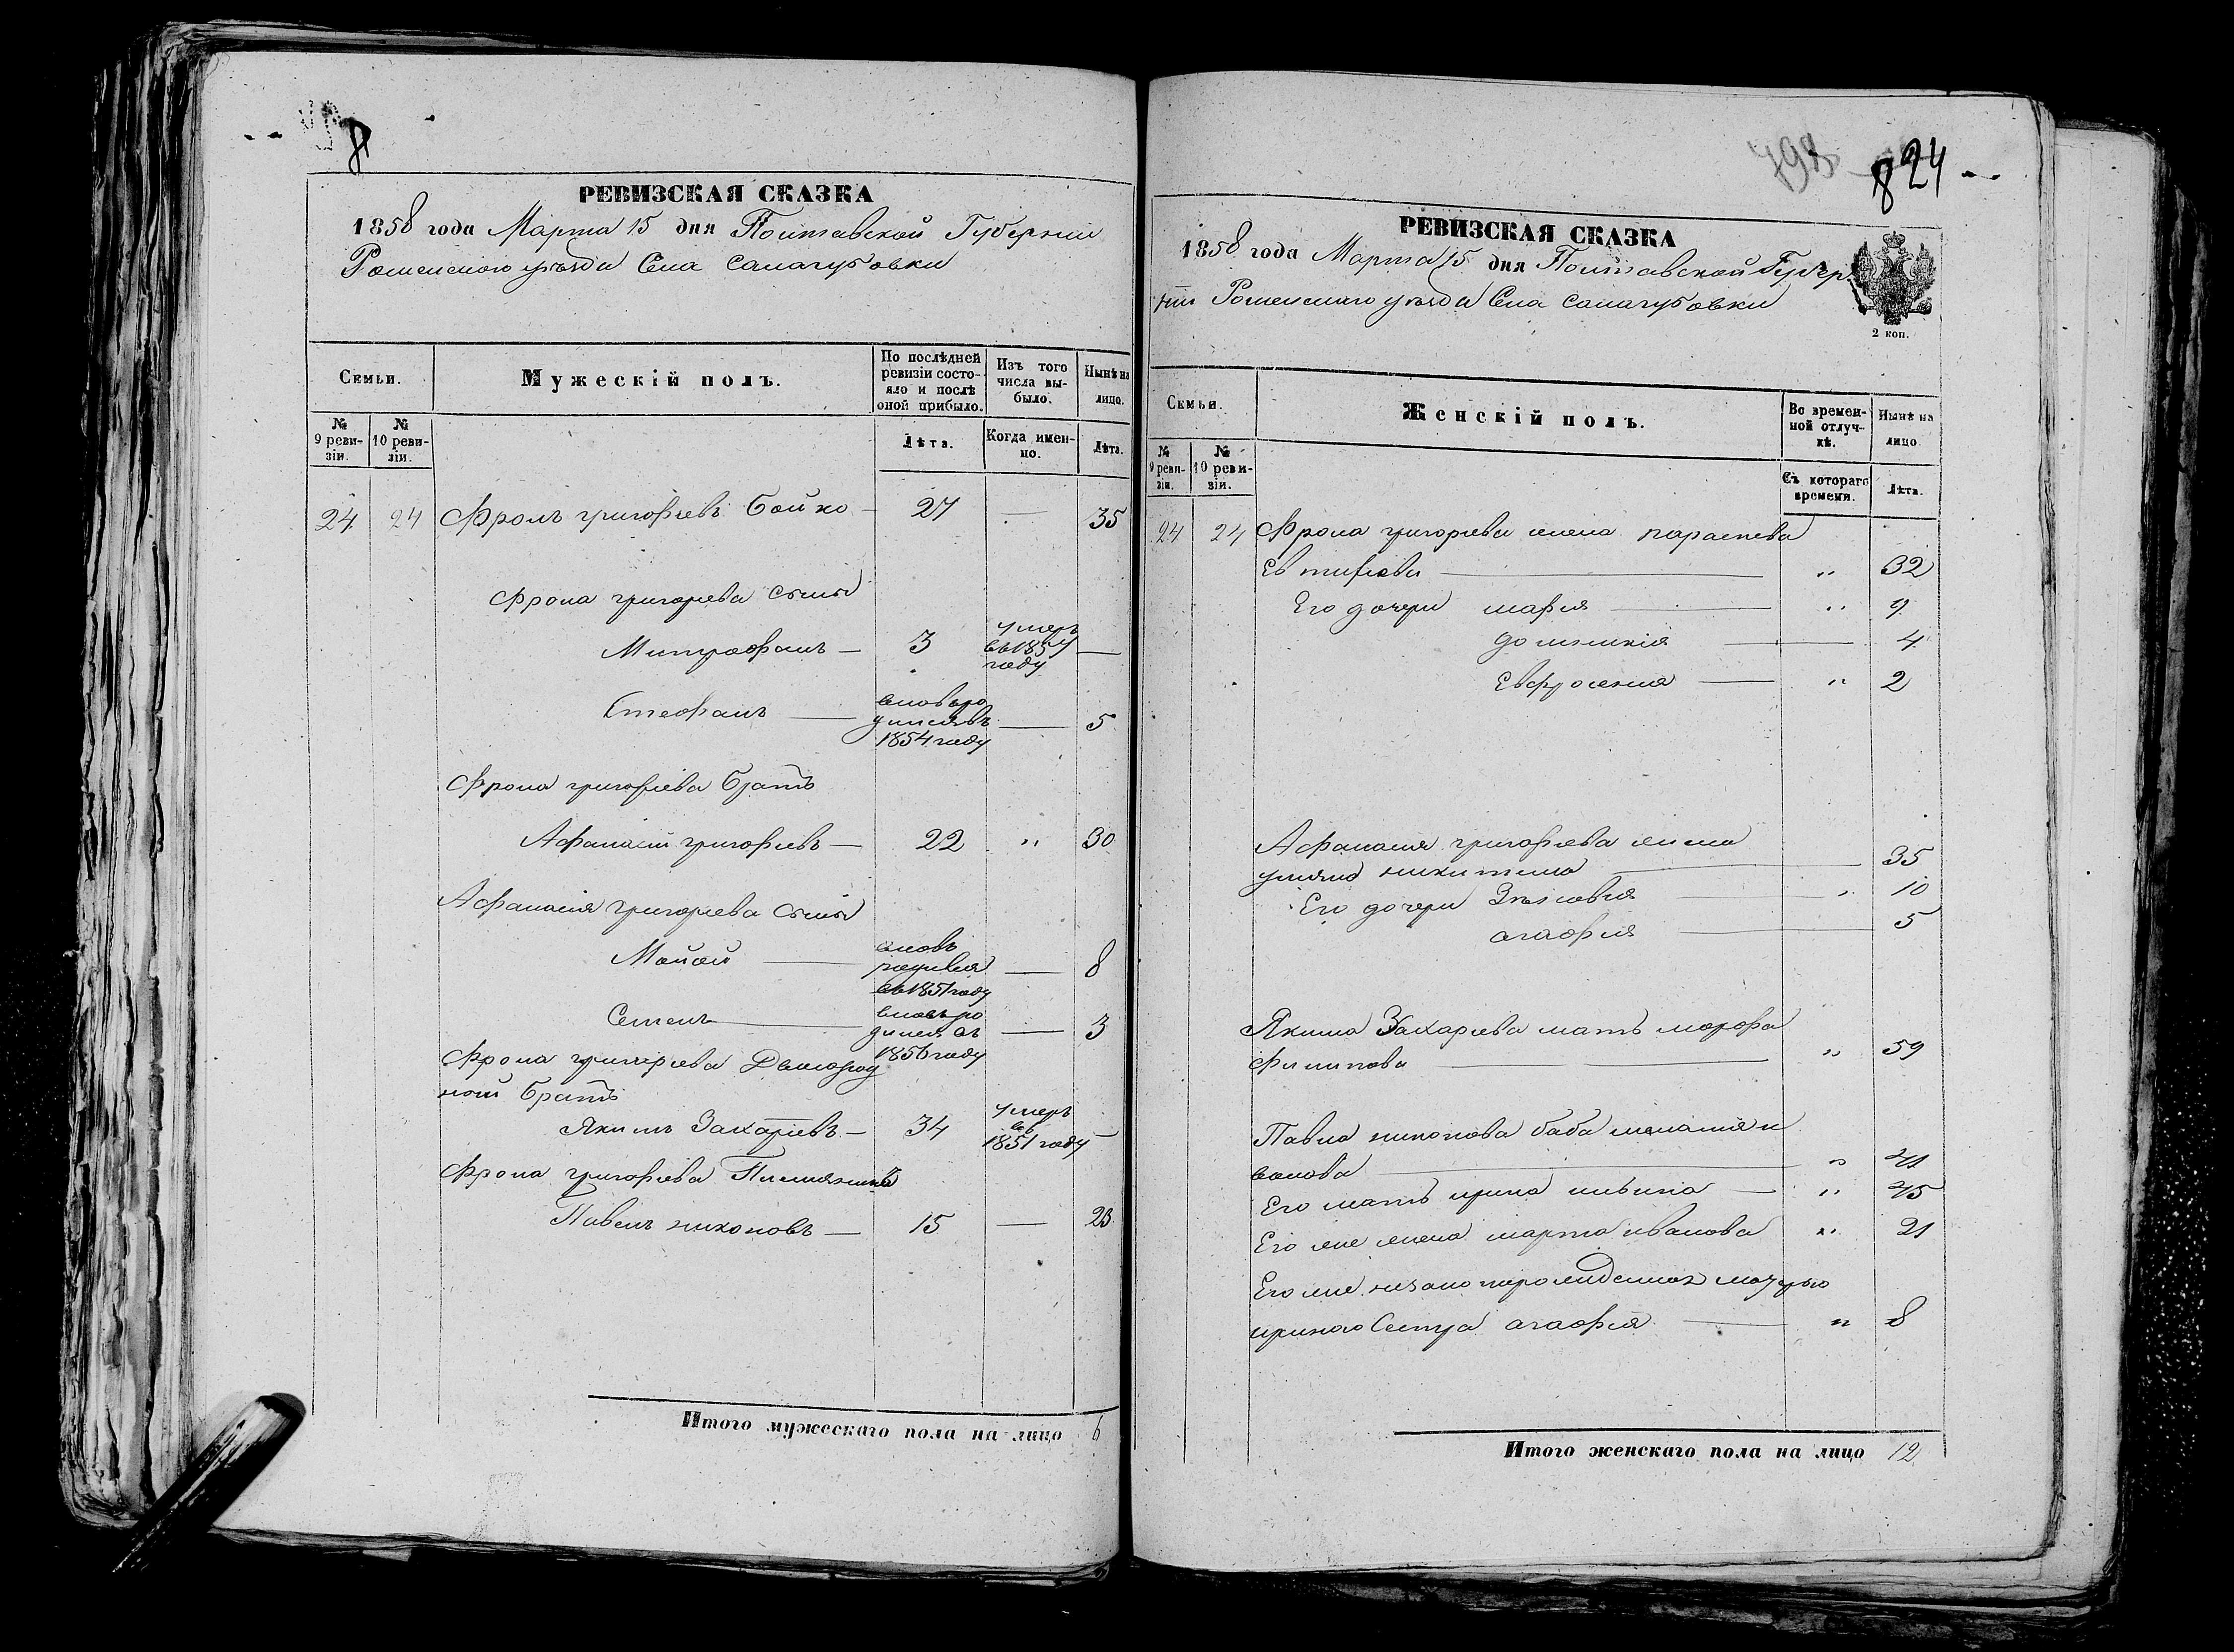 8
РЕВИЗСКАЯ СКАЗКА
1858 года Марта 15 дня Полтавской Губернии
Роменского уѣзда Села Салагубовки
Семьи.
Мужескій полъ.
По послѣдней ревизіи состояло и послѣ оной прибыло.
Изъ того числа выбыло.
Нынѣ на лицо.
№ 9 ревизіи.
№ 10 ревизіи.
Лѣта.
Когда именно.
Лѣта.
24 24 Фролъ григорьевъ Бойко — 27 — 35
Фрола григорьева сыны
Митрофанъ — 3 умеръ въ 1857 году —
Стефанъ — вновь родился въ 1854 году — 5
Фрола григорьева братъ
Афанасій григорьевъ — 22 " 30
Афанасія григорьева сыны
вновь родився въ 1851 году — 8
Семенъ — вновь родился въ 1856 году — 3
Фрола григорьева Двоюрод
ной братъ
Якимъ Захарьевъ — 34 умеръ въ 1851 году —
Фрола григорьева Племянникъ
Павелъ никоновъ — 15 — 23
Итого мужескаго пола на лицо 6
793
824
РЕВИЗСКАЯ СКАЗКА
1858 года Марта 15 дня Полтавской Губер
ніи Роменскаго уѣзда Села Салагубовки
2 коп.
Семьи.
Женскій полъ.
Во временной отлучкѣ.
Нынѣ на лицо
№ 9 ревизіи.
№ 10 ревизіи.
Съ котораго времени.
Лѣта.
24 24 Фрола григорьева жена параскева
Евтифіева — " 32
Его дочери марія — " 9
домникія — 4
Евфросенія — " 2
Афанасія григорьева жена
уліяна никитина — 35
Его дочери Зѣновія — " 10
агафія — 5
Якима Захарьева мать марфа
Филипова — " 59
Павла никонова баба меланія и
ванова — " 71
Его мать ирина ильина — " 45
Его же жена марта иванова " 21
Его же незаконорожденная матерью
ириною Сестра агафія — " 8
Итого женскаго пола на лицо 12